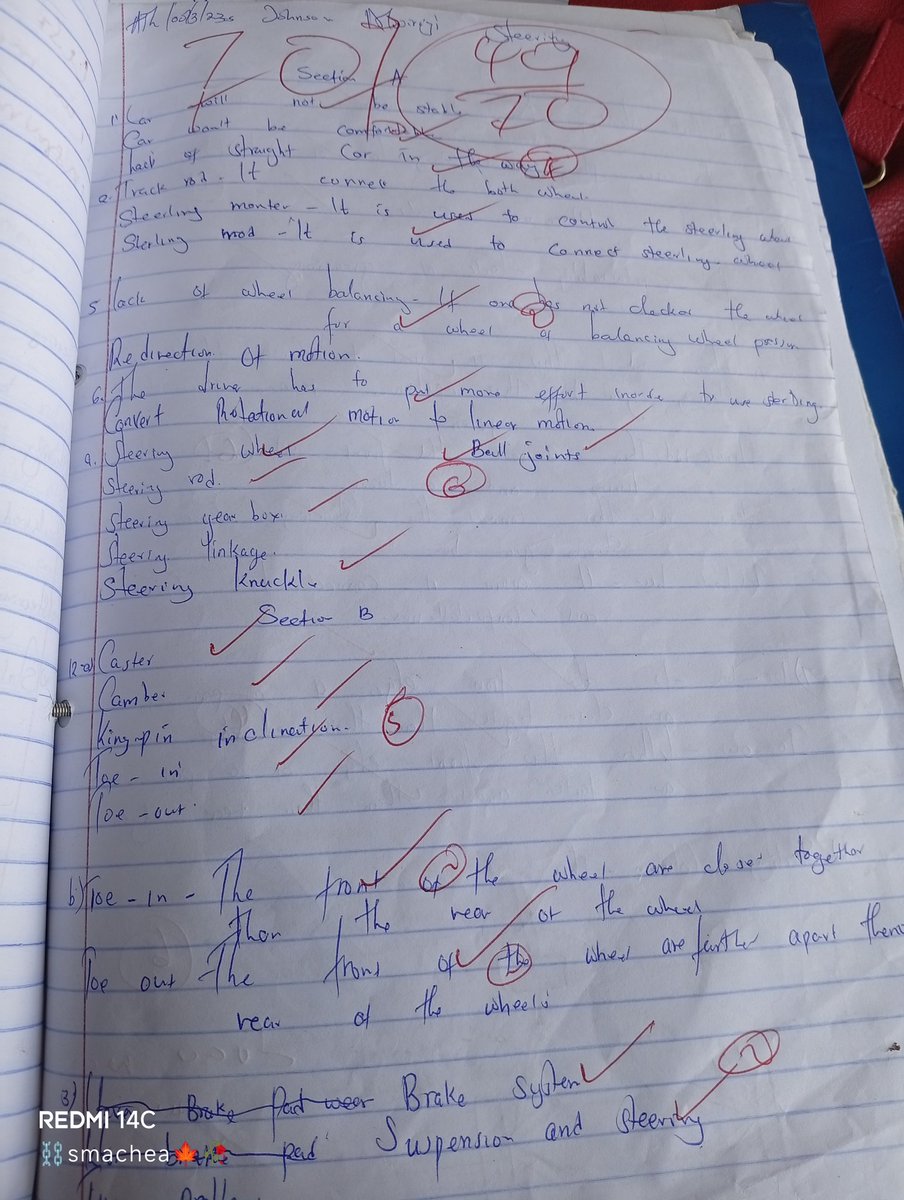 Ath/00/3/235 Johnson
Steering
70/
49
70
Section A
1) Car will not be stable
Car won't be comfortable
Lack of straight Car in the way
2. Track rod - It connect the both wheel
Steerling monter - It is used to control the steerling
Sterling mod - It is used to connect steerling wheel
5 lack of wheel balancing - If one does not checked the wheel
for a wheel of balancing wheel
Redirection of motion.
6. The driver has to put more effort to use sterling
Convert Rotational motion to linear motion
9. Steering wheel Ball joints
Steering rod. 6
Steering gear box.
Steering linkage.
Steering knuckle
Section B
12-a) Caster
Camber
King-pin inclination. 5
Toe - in
Toe - out.
b) Toe - in - The front of the wheel are closer together
than the rear of the wheel
Toe out - The front of the wheel are further apart
rear of the wheels
3) Brake Pad wear Brake System
pad Suspension and steering
REDMI 14C
smachea